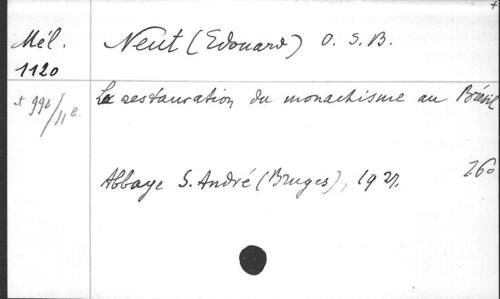 Mél. Neut (Edouard) O. S. B.
1120
La restauration du monachisme au Brésil
+ 99b/11e.
Abbaye S. André (Bruges), 1927. 260